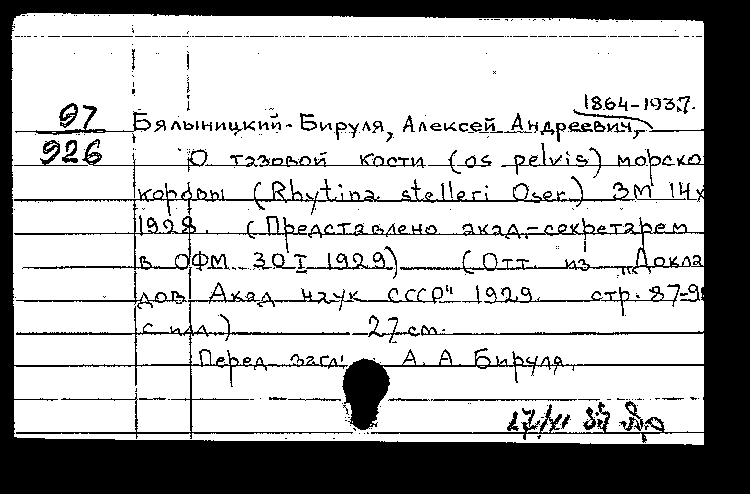 1864-1937.
97 Бялыницкий-Бируля, Алексей Андреевич,
926 О тазовой кости (os pelvis) морско
коровы (Rhytina stelleri Oser.) ЗМ 14 x
1928. (Представлено акад.-секретарем
в ОФМ 30 I 1929) (Отт. из „Докла
дов Акад наук СССР" 1929. стр. 87-9
с илл.) 27 см.
Перед загл: А. А. Бируля.
27/XI